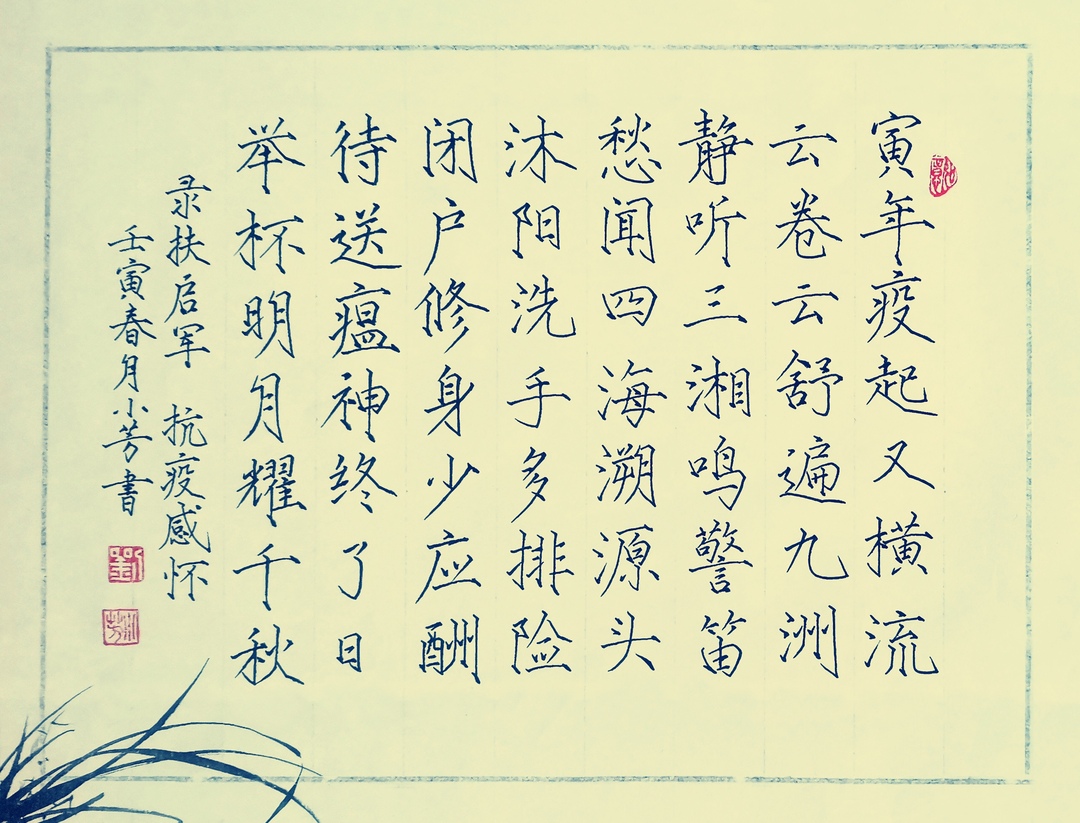 寅年疫起又横流
云卷云舒遍九洲
静听三湘鸣警笛
愁闻四海溯源头
沐阳洗手多排险
闭户修身少应酬
待送瘟神终了日
举杯明月耀千秋
录扶启军 抗疫感怀
壬寅春月小芳書